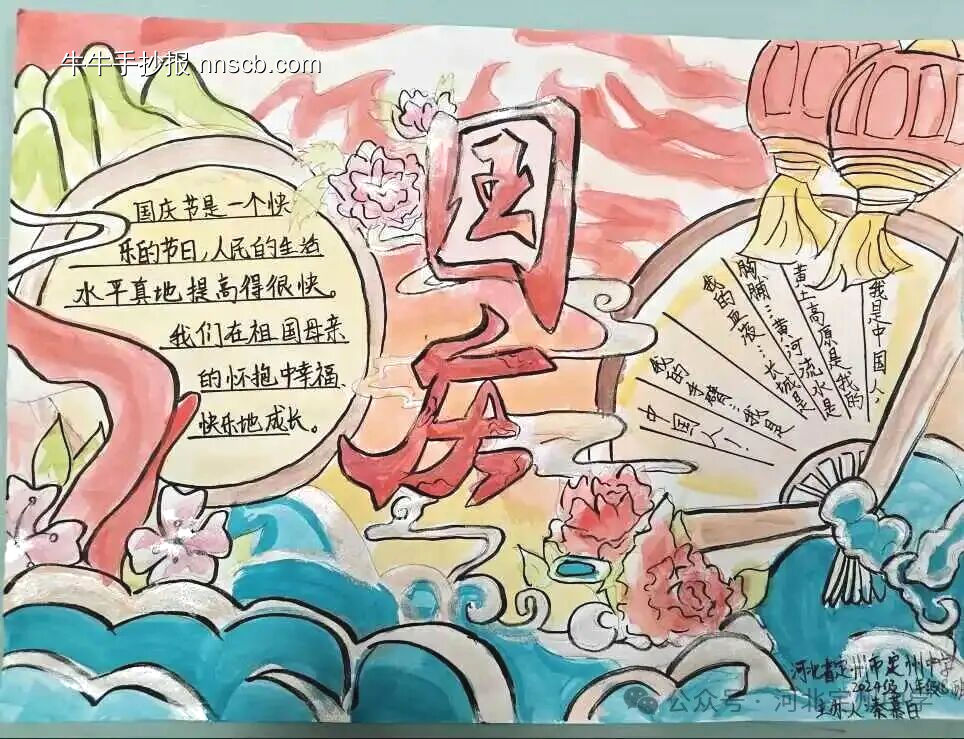 牛牛手抄报 nnscb.com
国庆
国庆节是一个快
乐的节日,人民的生活
水平真地提高得很快。
我们在祖国母亲
的怀抱中幸福、
快乐地成长。
我是中国人:
黄土高原是我的
胸脯…黄河流水是
我的血液…长城是
我的手臂…我是
中国人!
河北省定州市定州中学
2024级八年级
主办人
公众号 · 河北定